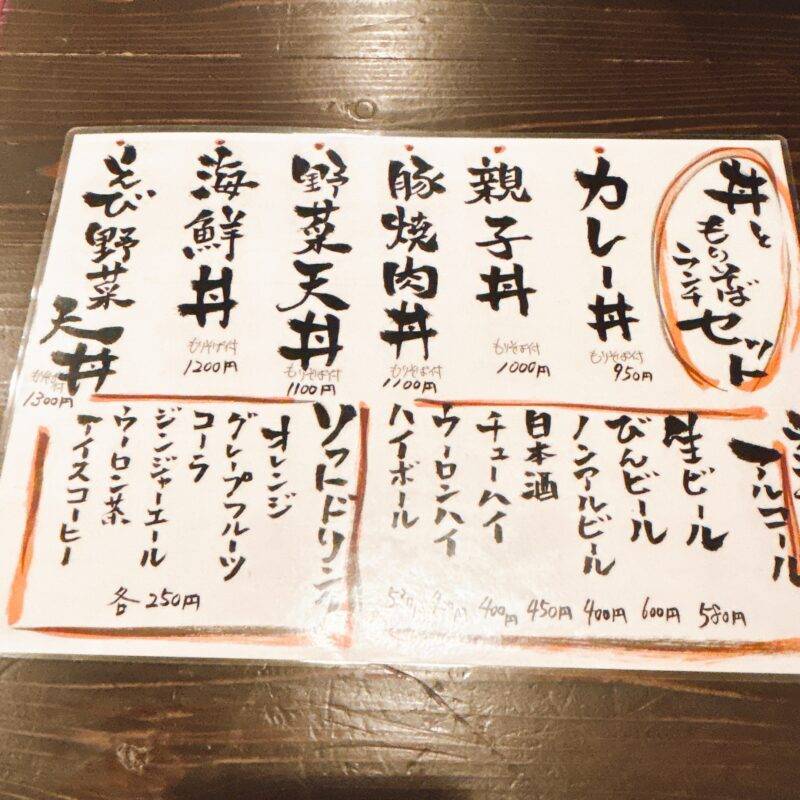 丼と
もりそば
ランチ
セット
カレー丼
もりそば付
950円
親子丼
もりそば付
1000円
豚焼肉丼
もりそば付
1100円
野菜天丼
もりそば付
1100円
海鮮丼
もりそば付
1200円
えび野菜
天丼
もりそば付
1300円
アルコール
生ビール
580円
びんビール
600円
ノンアルビール
400円
日本酒
450円
チューハイ
400円
ウーロンハイ
ハイボール
ソフトドリンク
オレンジ
グレープフルーツ
コーラ
ジンジャーエール
ウーロン茶
アイスコーヒー
各250円